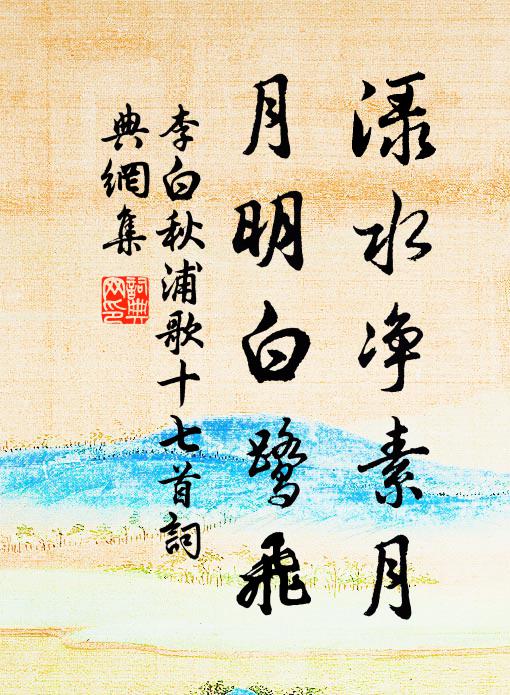 渌水净素月
月明白鹭飞
李白秋浦歌十七首詞
典網集
詞典
网印